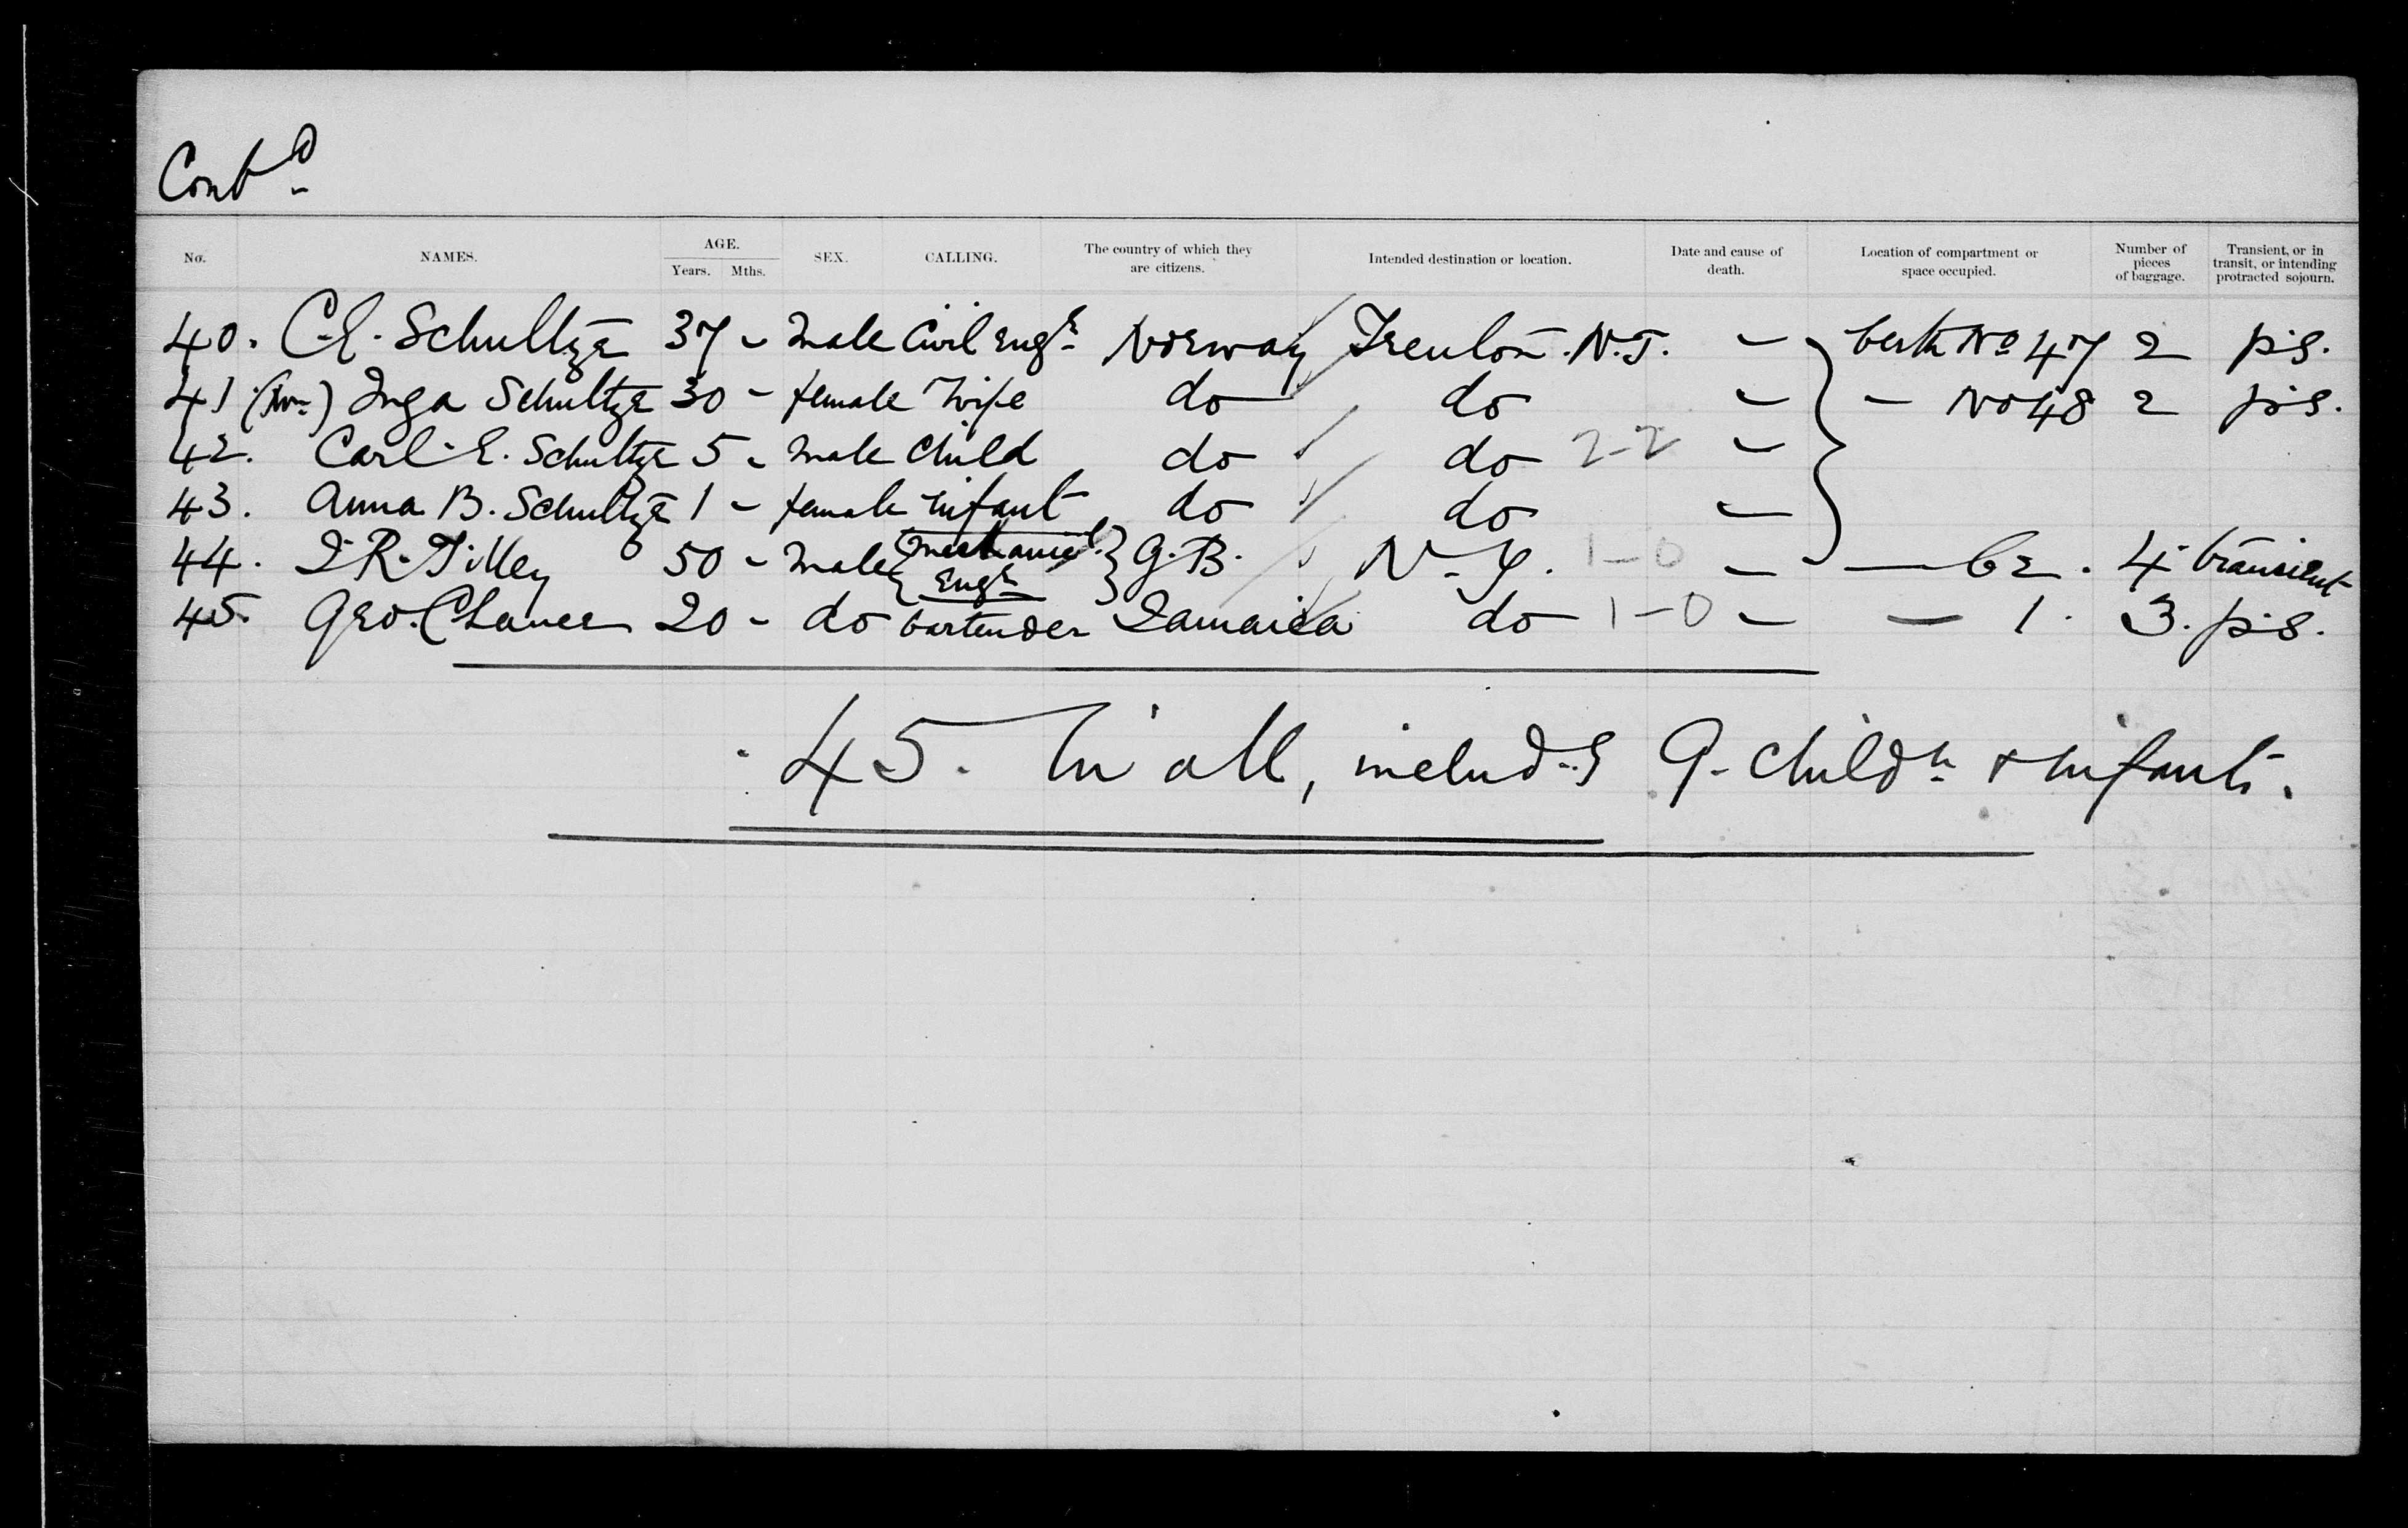 Contd
No. NAMES. AGE. Years. Mths. SEX. CALLING. The country of which they are citizens. Intended destination or location. Date and cause of death. Location of compartment or space occupied. Number of pieces of baggage. Transient, or in transit, or intending protracted sojourn.
40. C.E. Schultze 37 - male Civil Engr Norway Trenton. N.J. - berth No 47 2 p.s.
41 (Mrs) Inga Schultze 30 - female Wife do do - - No 48 2 p.s.
42. Carl E. Schultze 5 - male child do do 2-2 -
43. Anna B. Schultze 1 - female infant do do -
44. J. R. Tilley 50 - male { mechanical Engr } G.B. N.Y. 1-0 - - 62. 4 transient
45. Geo. Chaver 20 - do bartender Jamaica do 1-0 - - 1. 3. p.s.
45. in all, includg 9 childn & infants.